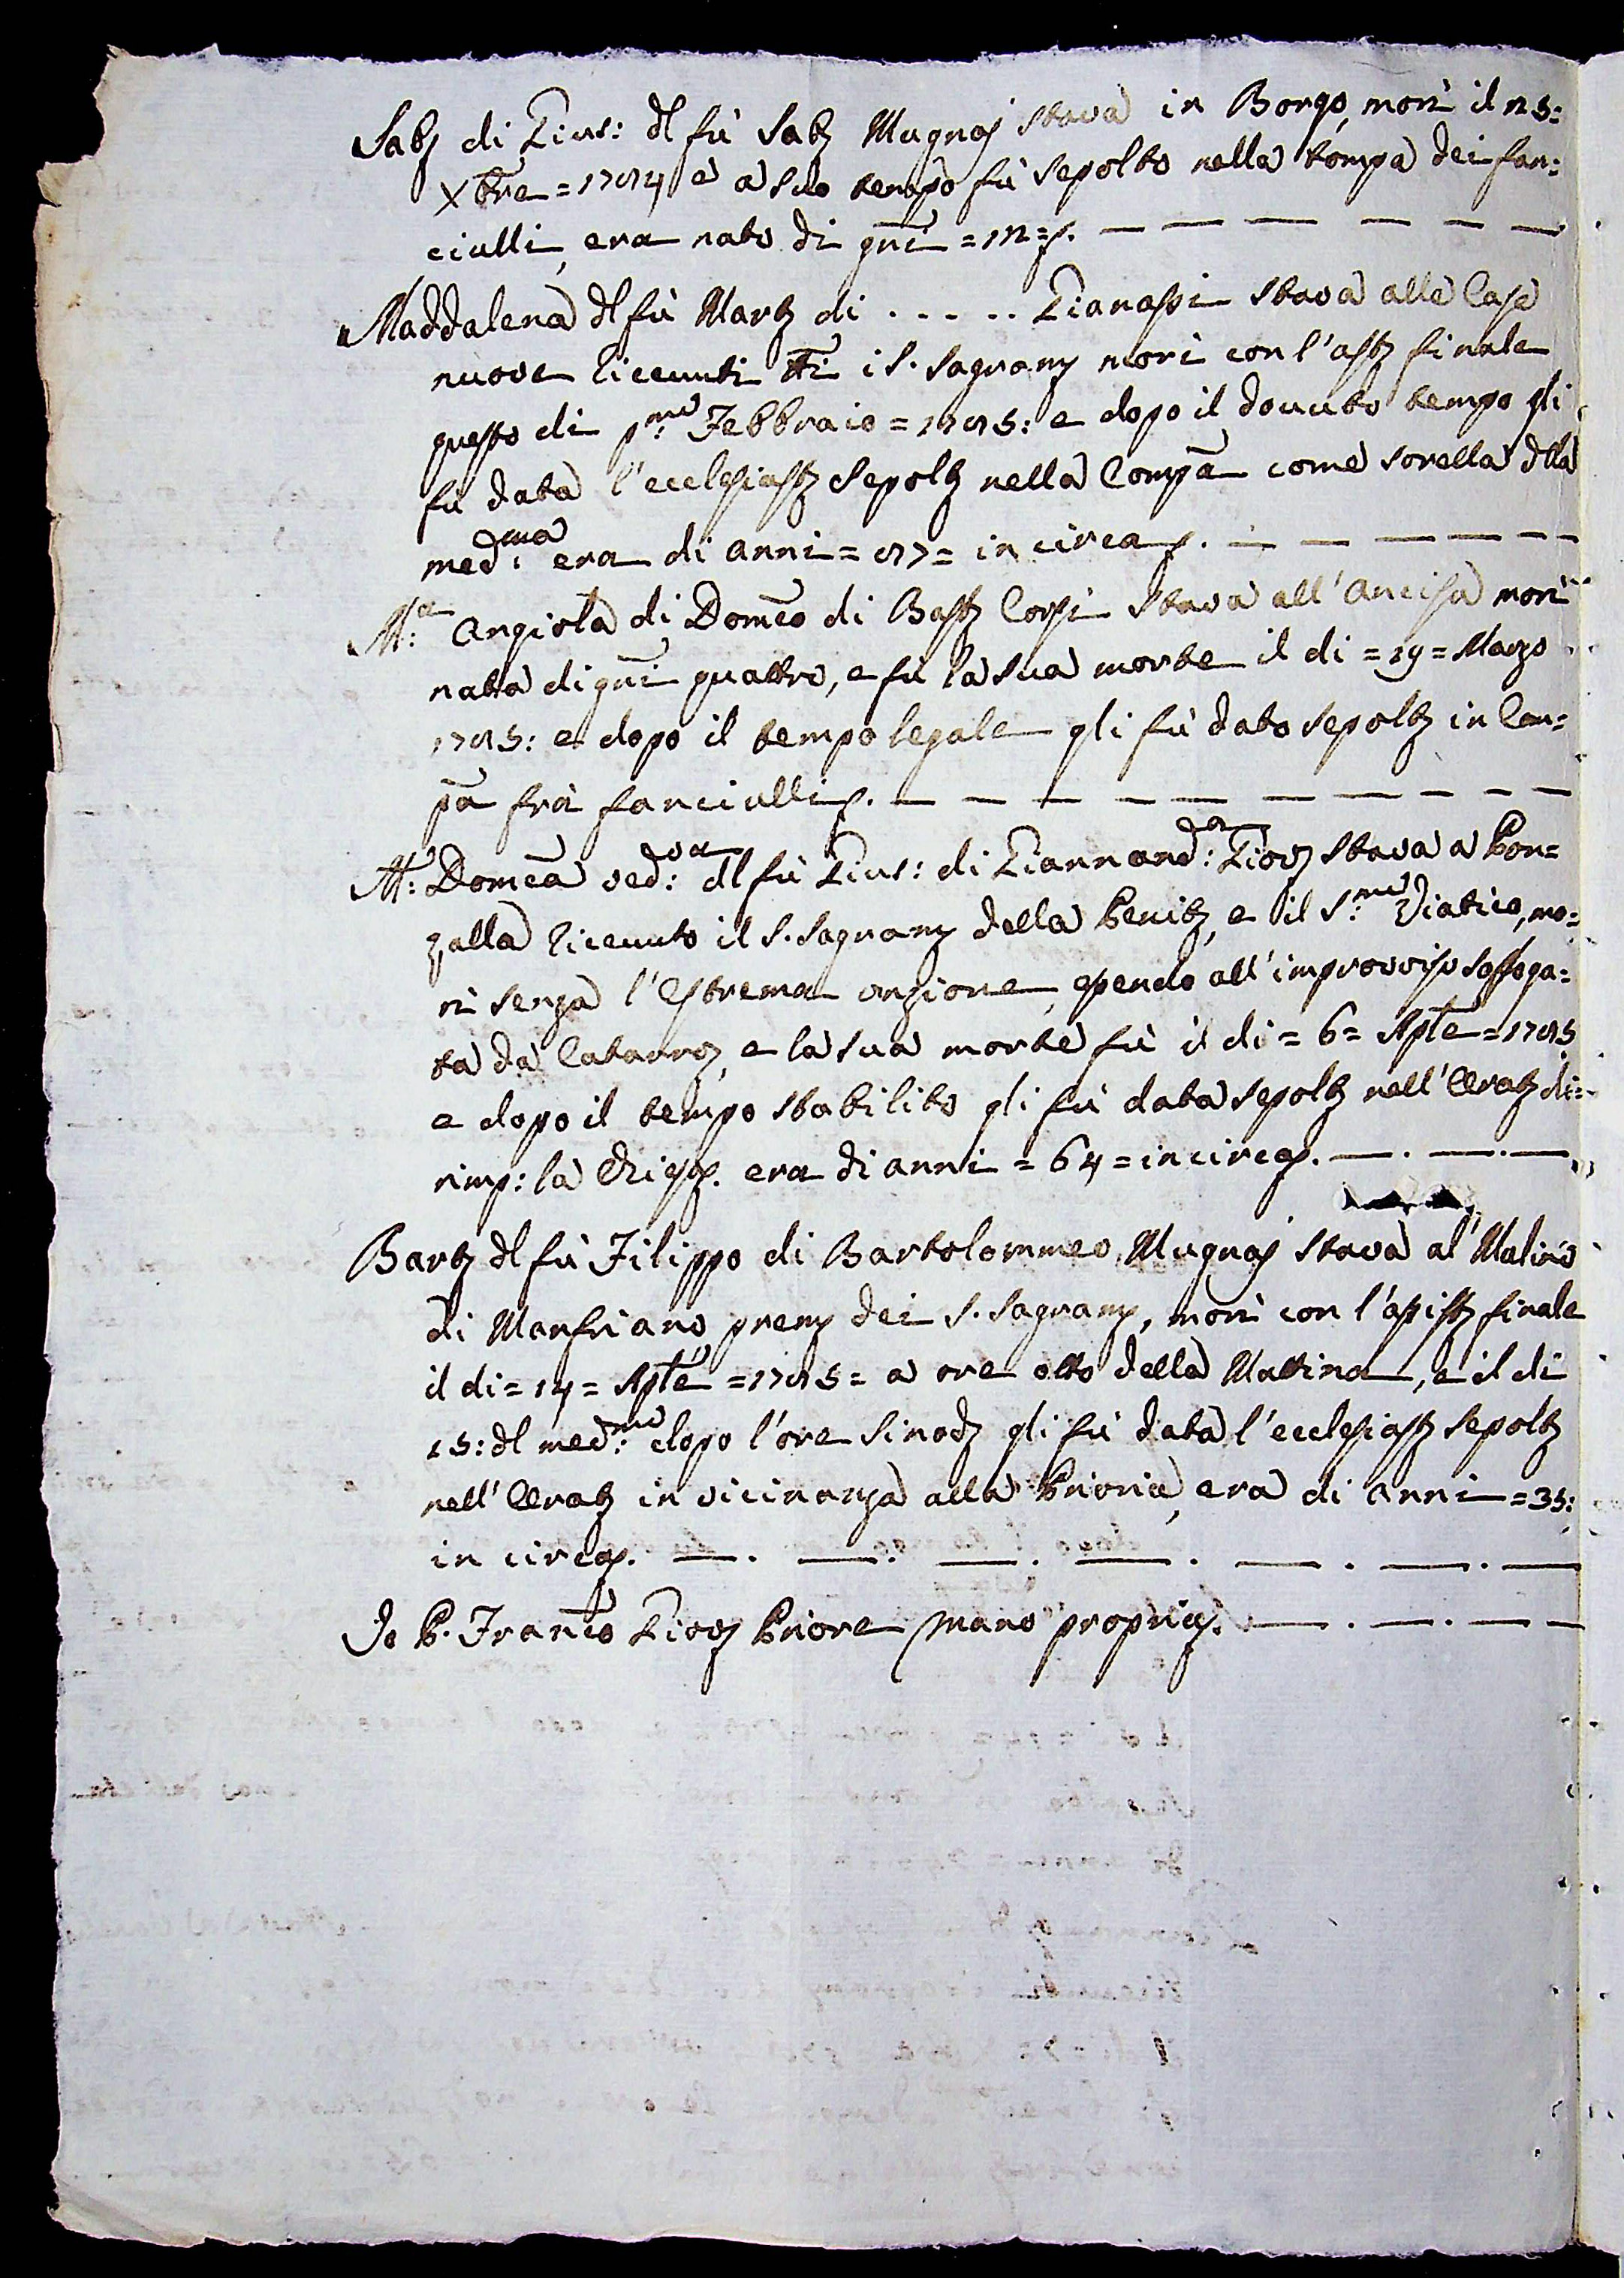 Sab: di Gius: dl fù Sab: Mugnaj stava in Borgo, morì il 25:
Xbre = 1784 e a suo tempo fù sepolto nella tompa dei fan:
ciulli, era nato di gni = 12 =. — — — — — —
Maddalena dl fù Mart: di . . . . . Gianassi stava alle Case
nuove riceuuti tti i S. Sagram: morì con l'ast: finale
questo dì pmo Febbraio = 1785: e dopo il douuto tempo gli
fù data l'ecclesiast: sepolt: nella Compa come sorella dlla
med:ma era di anni = 87 = in circa. — — — — — —
M:a Angiola di Domco di Bast: Corsi stava all'Ancisa morì
nata di gni quattro, e fù la sua morte il dì = 19 = Marzo
1785: e dopo il tempo legale gli fù dato sepolt: in Com:
pa frà fanciulli. — — — — — — — — — —
M: Domca ved:va dl fù Gius: di Giann and: Giov: stava a Pon=
zalla riceuuto il S. Sagram: della Penit:, e il S:mo Viatico, mo:
rì senza l'Estrema unzione, essendo all'improvviso soffoga=
ta da Catarro, e la sua morte fù il dì = 6 = Aple = 1785
e dopo il tempo stabilito gli fù data sepolt: nell'Cerat: di=
rimp: la Chiesa. era di anni = 64 = in circa. —. —. —
Bart: dl fù Filippo di Bartolommeo Mugnaj stava al Malino
di Manfriano prem: dei S. Sagram:, morì con l'assist: finale
il dì = 14 = Aple = 1785 = a ore otto della Mattina, e il dì
15: dl med:mo dopo l'ore sinod: gli fù data l'ecclesiast: sepolt:
nell'Cerat: in vicinanza alla Prioria, era di anni = 35:
in circa. —. —. —. —. —. —. —
Io P. Franco Giov: Priore mano propria. —. —. — —